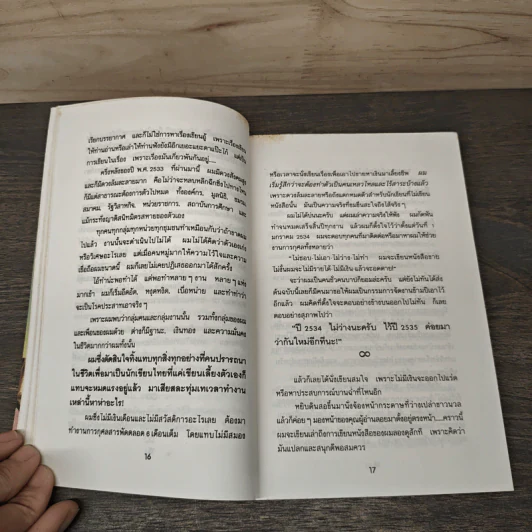 เรียกบรรยากาศ และก็ไม่ใช่การหาเรื่องเขียนอู้ เพราะเรื่องเขียน
ให้ท่านอ่านหรือเล่าให้ท่านฟังยังมีอีกเยอะแยะตาแป๊ะไก๋ แต่เป็น
การเขียนในเรื่อง เพราะเรื่องมันเกี่ยวพันกันอยู่....
ครึ่งหลังของปี พ.ศ. 2533 ที่ผ่านมานี้ ผมมีดวงสังคมสูง
และก็มีดวงล้มละลายมาก คือไม่ว่าจะหลบหลีกฉีกซึ่งไปทางไหน
ก็มีแต่สาธารณะต้องการตัวไปหมด ทั้งองค์กร มูลนิธิ ชมรม
สมาคม รัฐวิสาหกิจ หน่วยราชการ สถาบันการศึกษา และ
แม้กระทั่งญาติสนิทมิตรสหายของตัวเอง
ทุกคนทุกกลุ่มทุกหน่วยทุกชุมชนทำเหมือนกับว่าถ้าขาดผม
ไปแล้ว งานนั้นจะดำเนินไปไม่ได้ ผมไม่ได้คิดว่าตัวเองเก่ง
หรือวิเศษอะไรเลย แต่เมื่อคนหมู่มากให้ความไว้ใจและความ
เชื่อถือผมขนาดนี้ ผมก็เลยไม่เคยปฏิเสธออกมาได้สักครั้ง
ไอ้ทำน่ะพอทำได้ แต่พอทำหลาย ๆ งาน หลาย ๆ แห่ง
มากเข้า ผมก็เริ่มอึดอัด, หงุดหงิด, เบื่อหน่าย และทำท่าว่า
จะเป็นโรคประสาทเอาจริง ๆ
เพราะผมพบว่ากลุ่มคนและกลุ่มงานนั้น รวมทั้งกลุ่มของผม
และเพื่อนของผมด้วย ต่างก็มีฐานะ, เงินทอง และความมั่นคง
ในชีวิตมากกว่าผมทั้งนั้น
ผมซึ่งตัดสินใจทิ้งแทบทุกสิ่งทุกอย่างที่คนปรารถนา
ในชีวิตเพื่อมาเป็นนักเขียนไทยที่แค่เขียนเลี้ยงตัวเองก็
แทบจะหมดแรงอยู่แล้ว มาเสียสละทุ่มเทเวลาทำงาน
เหล่านี้หาห่าอะไร!
ผมซึ่งไม่มีเงินเดือนและไม่มีสวัสดิการอะไรเลย ต้องมา
ทำงานการกุศลสารพัดตลอด 6 เดือนเต็ม โดยแทบไม่มีสมอง
16
หรือเวลาจะนั่งเขียนเรื่องเพื่อเอาไปขายหาเงินมาเลี้ยงชีพ ผม
เริ่มรู้สึกว่าจะต้องทำตัวเป็นคนเหลวไหลและไร้สาระบ้างแล้ว
เพราะควรล้มละลายหรืออดแดกตัวสำหรับนักเขียนที่ไม่เขียน
หนังสือนั้น มันเป็นความจริงที่ชมขื่นสะใจยังไงชัดจริง ๆ
ผมไม่ได้บ่นนะครับ แต่ผมเล่าความจริงให้ฟัง ผมกัดฟัน
ทำจนหมดเสร็จสิ้นปีทุกงาน แล้วผมก็ตั้งใจไว้ว่าตั้งแต่วันที่ 1
มกราคม 2534 ผมจะตอบทุกคนที่มาติดต่อหรือมาหาผมให้ช่วย
งานการกุศลทั้งหลายว่า
"ไม่ชอบ ไม่เอา ไม่ว่าง ไม่ทำ ผมจะเขียนหนังสือขาย
ไม่งั้นผมจะไม่มีรายได้ ไม่มีเงิน แล้วก็จะอดตายฮะ"
จะว่าผมเป็นคนชั่วคนบาปก็ยอมล่ะครับ แต่ยังไม่ทันได้ส่ง
ต้นฉบับนี้เลยก็มีคนมาขอให้ผมเป็นกรรมการจัดงานช้างเป็นเอาไว้
อีกแล้ว ผมคิดที่ตั้งใจจะตอบอย่างข้างบนตอบไปไม่ทัน ก็เลย
ตอบอย่างสุภาพไปว่า
"ปี 2534 ไม่ว่างนะครับ ไว้ปี 2535 ค่อยมา
ว่ากันใหม่อีกทีนะ!"
∞
แล้วก็เลยได้นั่งเขียนสมใจ เพราะไม่มีเงินจะออกไปแร่ด
หรือหาประสบการณ์บานฉ่ำที่ไหนอีก
หยิบดินสอขึ้นมานั่งจ้องหน้ากระดาษที่ว่างเปล่าขาวนวล
แล้วก็ค่อย ๆ มองหน้าของคุณผู้อ่านลอยมาตั้งอยู่ตรงหน้า....คราวนี้
ผมจะเขียนเล่าถึงการเขียนหนังสือของผมลองดูสักที เพราะคิดว่า
มันแปลกและสนุกดีพอสมควร
17